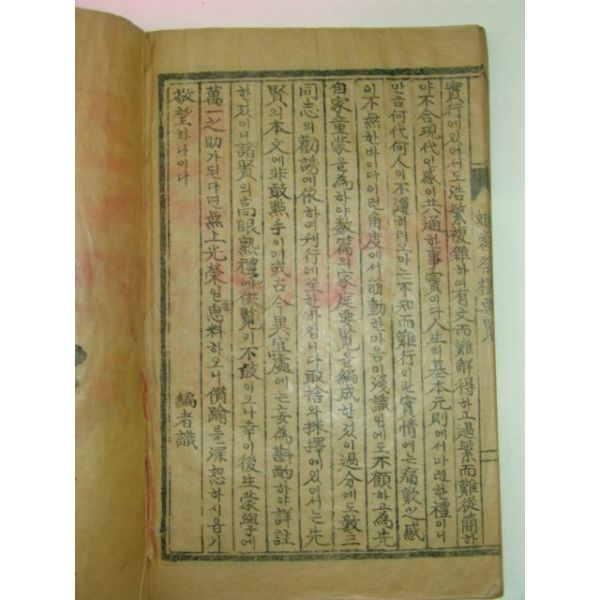 實行에있어서도浩繁複雜하여有文而難解得하고過繁而難從簡하
야不合現代인感이共通한事實이다人生의基本元則에서마련한禮이니
만큼何代何人이不遵하리오마는不知而難行이란實情에는痛歎之感
이不無한바이다이런角度에서茆動한마음미淺識임에도不顧하고爲先
自家童蒙을爲하야數篇의家庭要覽을編成한것이過分에도數三
同志의勸誘에依하여刊行에至한바입니다取捨와採擇에있어서는先
賢의本文에非敢點手이며或古今異宜處에는妄爲斟酌하야詳註
한것이니諸賢의高眼熟禮에供覽키不敢이오나幸이後生蒙學에
萬一之助가된다면無上光榮일思料하오니僭踰를深恕하시옵기
敬望하나이다
編者識